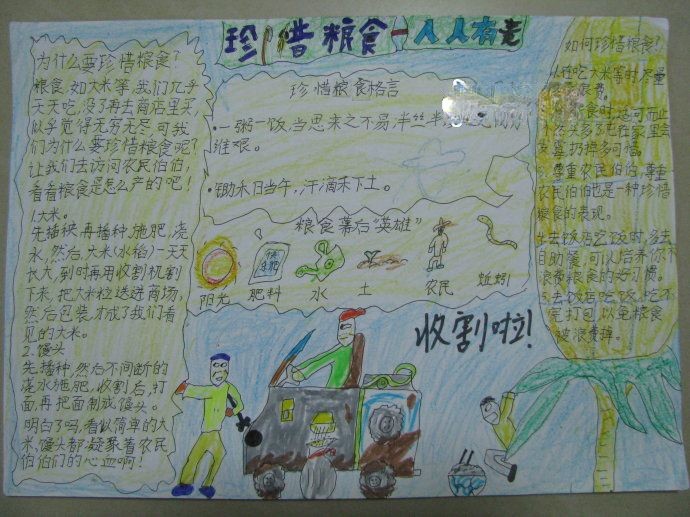 珍惜粮食－人人有责
为什么要珍惜粮食?
粮食,如大米等,我们几乎
天天吃,没了再去商店里买,
似乎觉得无穷无尽可我
们为什么要珍惜粮食呢?
让我们去访问农民伯伯,
看看粮食是怎么产的吧!
1大米。
先插秧,再播种,施肥,浇
水,然后,大米(水稻)一天天
长大,到时再用收割机割
下来,把大米粒送进商场,
然后包装,才成了我们看
见的大米。
2.馒头
先播种,然后不间断的
浇水施肥,收割后,打
面,再把面制成馒头。
明白了吗,看似简单的大
米,馒头都凝聚着农民
伯伯们的心血啊!
珍惜粮食格言
·一粥一饭,当思来之不易,半丝半
维艰。
·锄禾日当午,汗滴禾下土。
粮食幕后"英雄"
阳光
肥料
水
土
农民
蚯蚓
收割啦!
如何珍惜粮食?
吃大米等时,尽量
浪费。
食时,适可而止
买多了吃在家里会
发霉,扔掉多可惜。
尊重农民伯伯,尊重
农民伯伯也是一种珍惜
粮食的表现。
4.去饭店吃饭时,多去
自助餐,可以培养你不
浪费粮食的好习惯。
5.去饭店吃饭,吃不
完打包,以免粮食
被浪费掉。